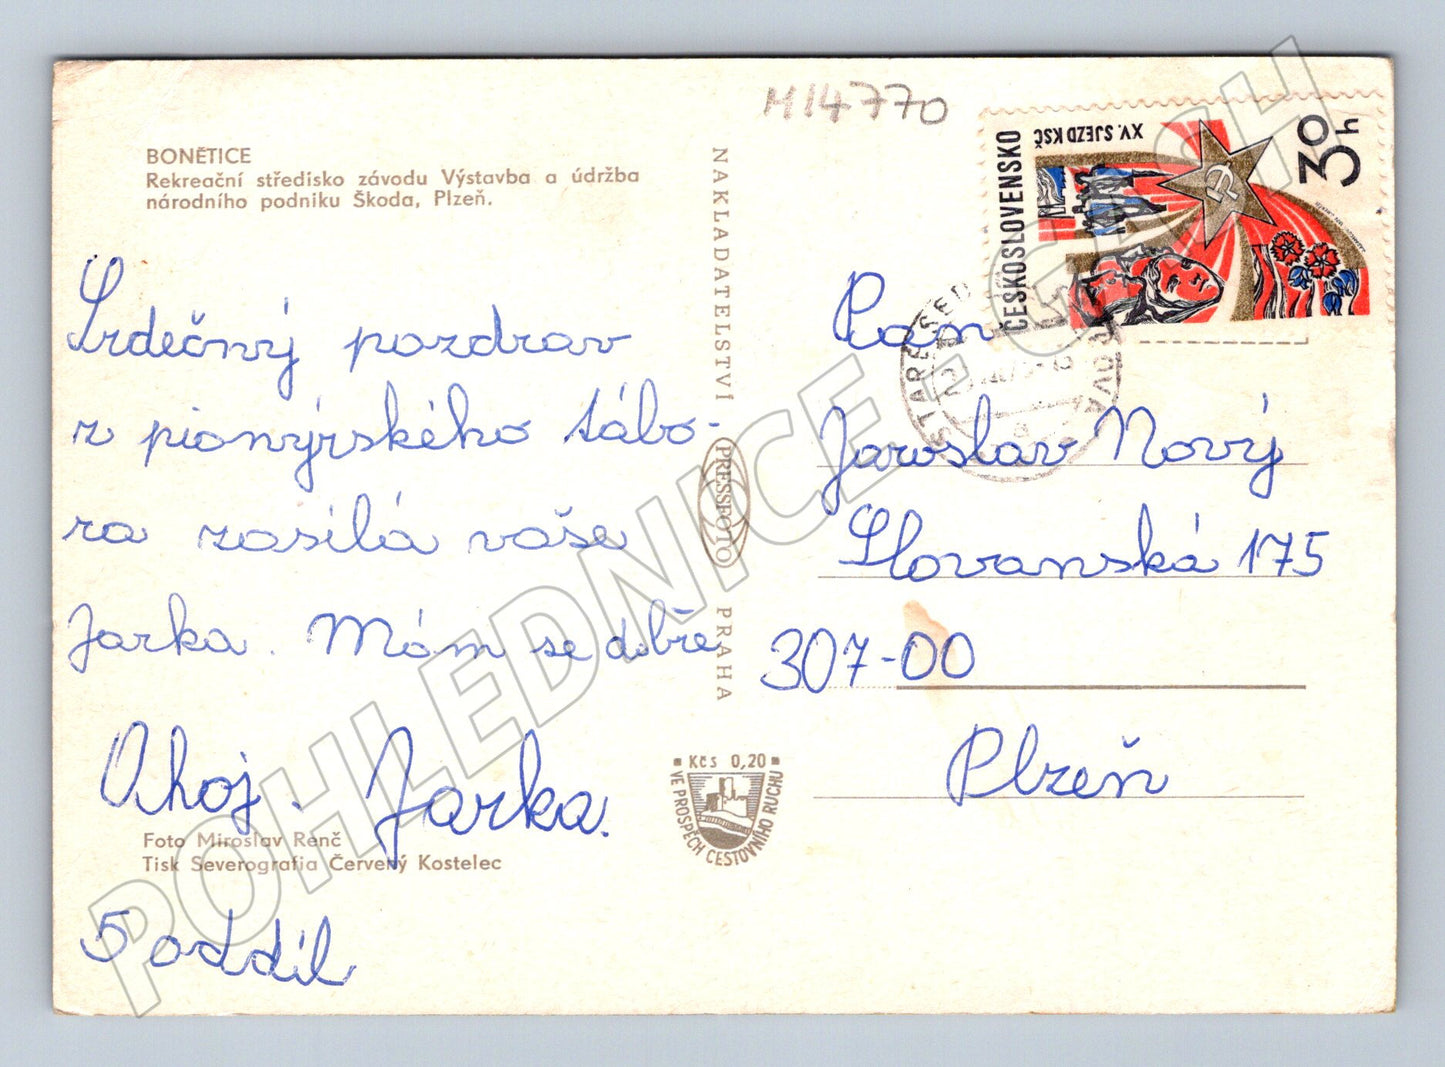 M14770
BONĚTICE
Rekreační středisko závodu Výstavba a údržba
národního podniku Škoda, Plzeň.
Srdečný pozdrav
z pionýrského tábo-
ra zasílá vaše
Jarka. Mám se dobře
Ahoj. Jarka.
5 oddíl
Foto Miroslav Renč
Tisk Severografia Červený Kostelec
NAKLADATELSTVÍ
PRESSFOTO
PRAHA
Kčs 0,20
VE PROSPĚCH CESTOVNÍHO RUCHU
ČESKOSLOVENSKO
XV. SJEZD KSČ
30h
STARÉ SED
Pan
Jaroslav Nový
Slovanská 175
307-00
Plzeň
POHLEDNICE - GASH